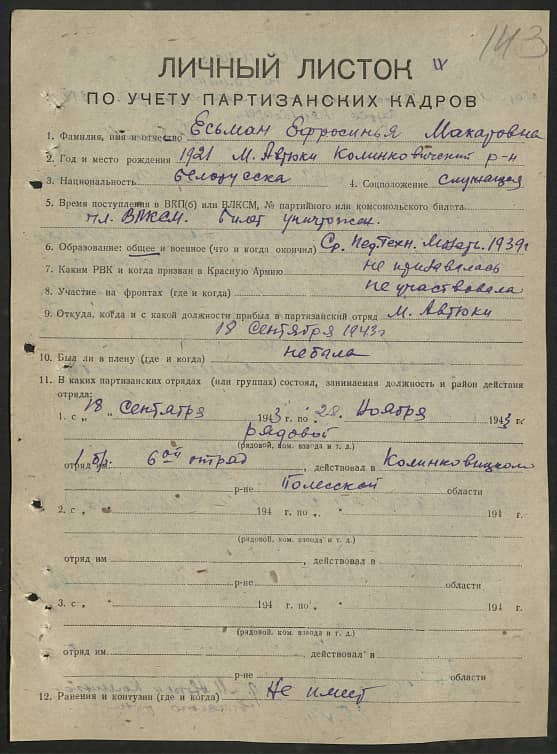 143
ЛИЧНЫЙ ЛИСТОК IV
ПО УЧЕТУ ПАРТИЗАНСКИХ КАДРОВ
1. Фамилия, имя и отчество Есьман Ефросинья Макаровна
2. Год и место рождения 1921 М. Автюки Колинковичский р-н
3. Национальность белорусска 4. Соцположение служащая
5. Время поступления в ВКП(б) или ВЛКСМ, № партийного или комсомольского билета
чл. ВЛКСМ. билет уничтожен.
6. Образование: общее и военное (что и когда окончил) Ср. Пед.Техн. Мозырь. 1939г
7. Каким РВК и когда призван в Красную Армию не призывалась
8. Участие на фронтах (где и когда) не участвовала
9. Откуда, когда и с какой должности прибыл в партизанский отряд М. Автюки
18 Сентября 1943г
10. Был ли в плену (где и когда) небыла
11. В каких партизанских отрядах (или группах) состоял, занимаемая должность и район действия
отряда:
1. с „ 18 „ Сентября 1943 г. по „ 28 „ Ноября 1943 г.
рядовой
(рядовой, ком. взвода и т. д.)
отряд им. 1 бр. 6ой отряд , действовал в Колинковицком
р-не Полесской области
2. с „ 194 г. по „ „ 194 г.
(рядовой, ком. взвода и т. д.)
отряд им , действовал в
р-не области
3. с „ 194 г. по „ „ 194 г.
(рядовой, ком. взвода и т. д.)
отряд им. , действовал в
р-не области
12. Ранения и контузии (где и когда) Не имеет